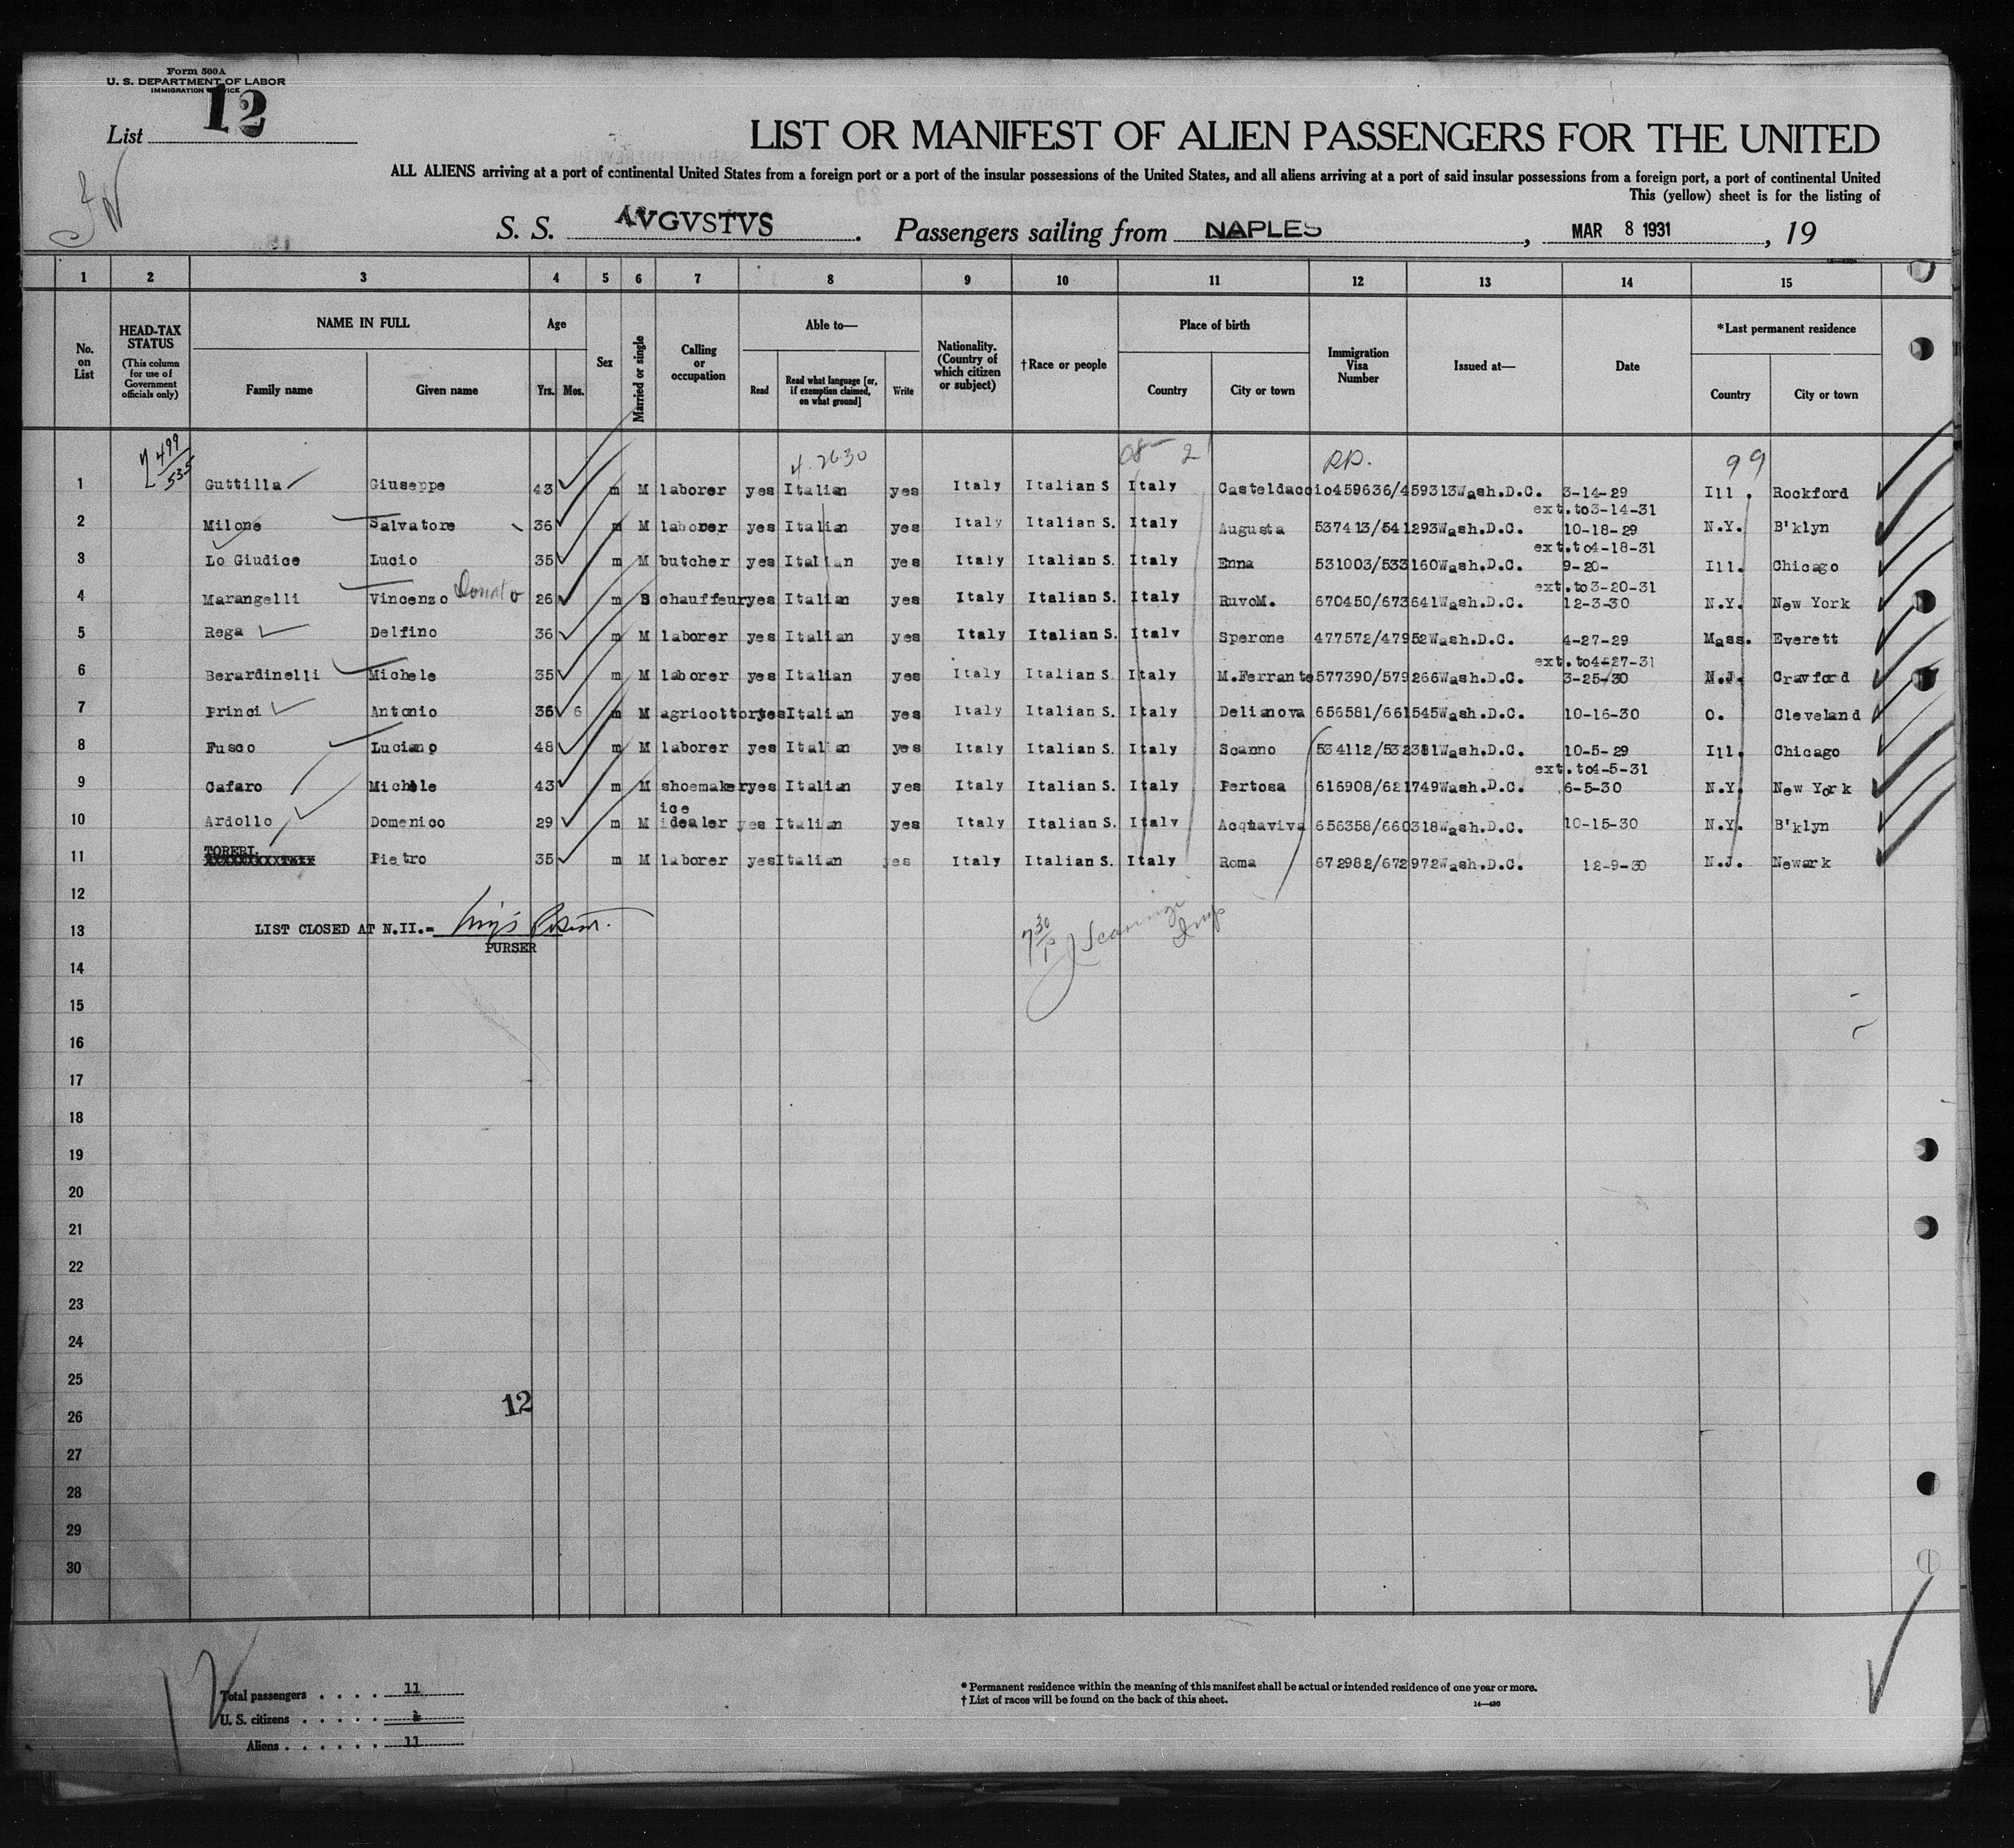 Form 500A
U. S. DEPARTMENT OF LABOR
IMMIGRATION SERVICE
List 12
LIST OR MANIFEST OF ALIEN PASSENGERS FOR THE UNITED
ALL ALIENS arriving at a port of continental United States from a foreign port or a port of the insular possessions of the United States, and all aliens arriving at a port of said insular possessions from a foreign port, a port of continental United
This (yellow) sheet is for the listing of
S. S. AVGVSTVS. Passengers sailing from NAPLES, MAR 8 1931, 19
1 2 3 4 5 6 7 8 9 10 11 12 13 14 15
No. on List
HEAD-TAX STATUS
(This column for use of Government officials only)
NAME IN FULL
Family name Given name
Age
Yrs. Mos.
Sex
Married or single
Calling or occupation
Able to—
Read Read what language [or, if exemption claimed, on what ground] Write
Nationality. (Country of which citizen or subject)
†Race or people
Place of birth
Country City or town
Immigration Visa Number
Issued at—
Date
*Last permanent residence
Country City or town
499
535
4.2630 08 2 RP. 99
1 Guttilla Giuseppe 43 m M laborer yes Italian yes Italy Italian S Italy Casteldaccio 459636/459313 Wash.D.C. 3-14-29 Ill. Rockford
ext.to3-14-31
2 Milone Salvatore 36 m M laborer yes Italian yes Italy Italian S. Italy Augusta 537413/541293 Wash.D.C. 10-18-29 N.Y. B'klyn
ext.to4-18-31
3 Lo Giudice Lucio 35 m M butcher yes Italian yes Italy Italian S. Italy Enna 531003/533160 Wash.D.C. 9-20- Ill. Chicago
ext.to3-20-31
4 Marangelli Vincenzo Donato 26 m S chauffeur yes Italian yes Italy Italian S. Italy RuvoM. 670450/673641 Wash.D.C. 12-3-30 N.Y. New York
5 Rega Delfino 36 m M laborer yes Italian yes Italy Italian S. Italy Sperone 477572/47952 Wash.D.C. 4-27-29 Mass. Everett
ext.to4-27-31
6 Berardinelli Michele 35 m M laborer yes Italian yes Italy Italian S. Italy M.Ferrante 577390/579266 Wash.D.C. 3-25-30 N.J. Cravford
7 Princi Antonio 36 6 m M agricottore yes Italian yes Italy Italian S. Italy Delianova 656581/661545 Wash.D.C. 10-16-30 O. Cleveland
8 Fusco Luciano 48 m M laborer yes Italian yes Italy Italian S. Italy Scanno 534112/532381 Wash.D.C. 10-5-29 Ill. Chicago
ext.to4-5-31
9 Cafaro Michele 43 m M shoemaker yes Italian yes Italy Italian S. Italy Pertosa 616908/621749 Wash.D.C. 6-5-30 N.Y. New York
ice
10 Ardollo Domenico 29 m M idealer yes Italian yes Italy Italian S. Italy Acquaviva 656358/660318 Wash.D.C. 10-15-30 N.Y. B'klyn
TORERI
11 Pietro 35 m M laborer yes Italian yes Italy Italian S. Italy Roma 672982/672972 Wash.D.C. 12-9-30 N.J. Newark
12
13 LIST CLOSED AT N.II.=
PURSER
14
15
16
17
18
19
20
21
22
23
24
25
12
26
27
28
29
30
Total passengers . . . . 11
U. S. citizens . . . . .
Aliens . . . . . . 11
* Permanent residence within the meaning of this manifest shall be actual or intended residence of one year or more.
† List of races will be found on the back of this sheet.
14—430